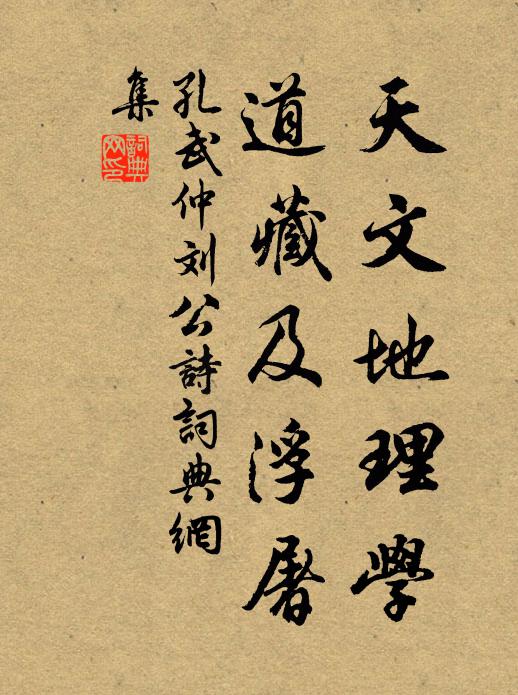 天文地理學
道藏及浮屠
孔武仲刘公詩詞典網
集
詞典
网印